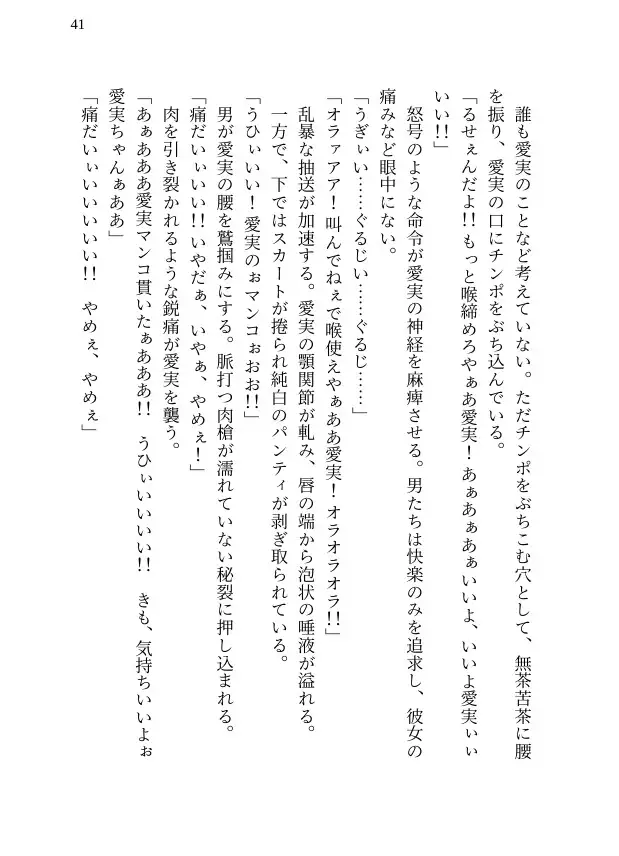 41
誰も愛実のことなど考えていない。ただチンポをぶちこむ穴として、無茶苦茶に腰
を振り、愛実の口にチンポをぶち込んでいる。
「るせぇんだよ!!もっと喉締めろやぁあ愛実！あぁあぁあぁいいよ、いいよ愛実ぃぃ
いい!!」
怒号のような命令が愛実の神経を麻痺させる。男たちは快楽のみを追求し、彼女の
痛みなど眼中にない。
「うぎぃい……ぐるじい……ぐるじ……」
「オラァアア！叫んでねぇで喉使えやぁああ愛実！オラオラオラ!!」
乱暴な抽送が加速する。愛実の顎関節が軋み、唇の端から泡状の唾液が溢れる。
一方で、下ではスカートが捲られ純白のパンティが剥ぎ取られている。
「うひぃいい！愛実のぉマンコぉおお!!」
男が愛実の腰を鷲掴みにする。脈打つ肉槍が濡れていない秘裂に押し込まれる。
「痛だいぃいい!!いやだぁ、いやぁ、やめぇ！」
肉を引き裂かれるような鋭痛が愛実を襲う。
「あぁあああ愛実マンコ貫いたぁあああ!!　うひぃいいいい!!　きも、気持ちいいよぉ
愛実ちゃんぁああ」
「痛だいぃいいいいい!!　やめぇ、やめぇ」